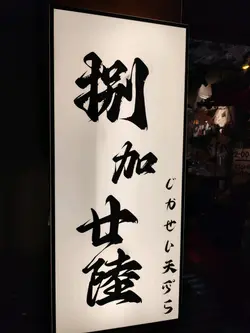 捌加廿陸
じかせい天ぷら